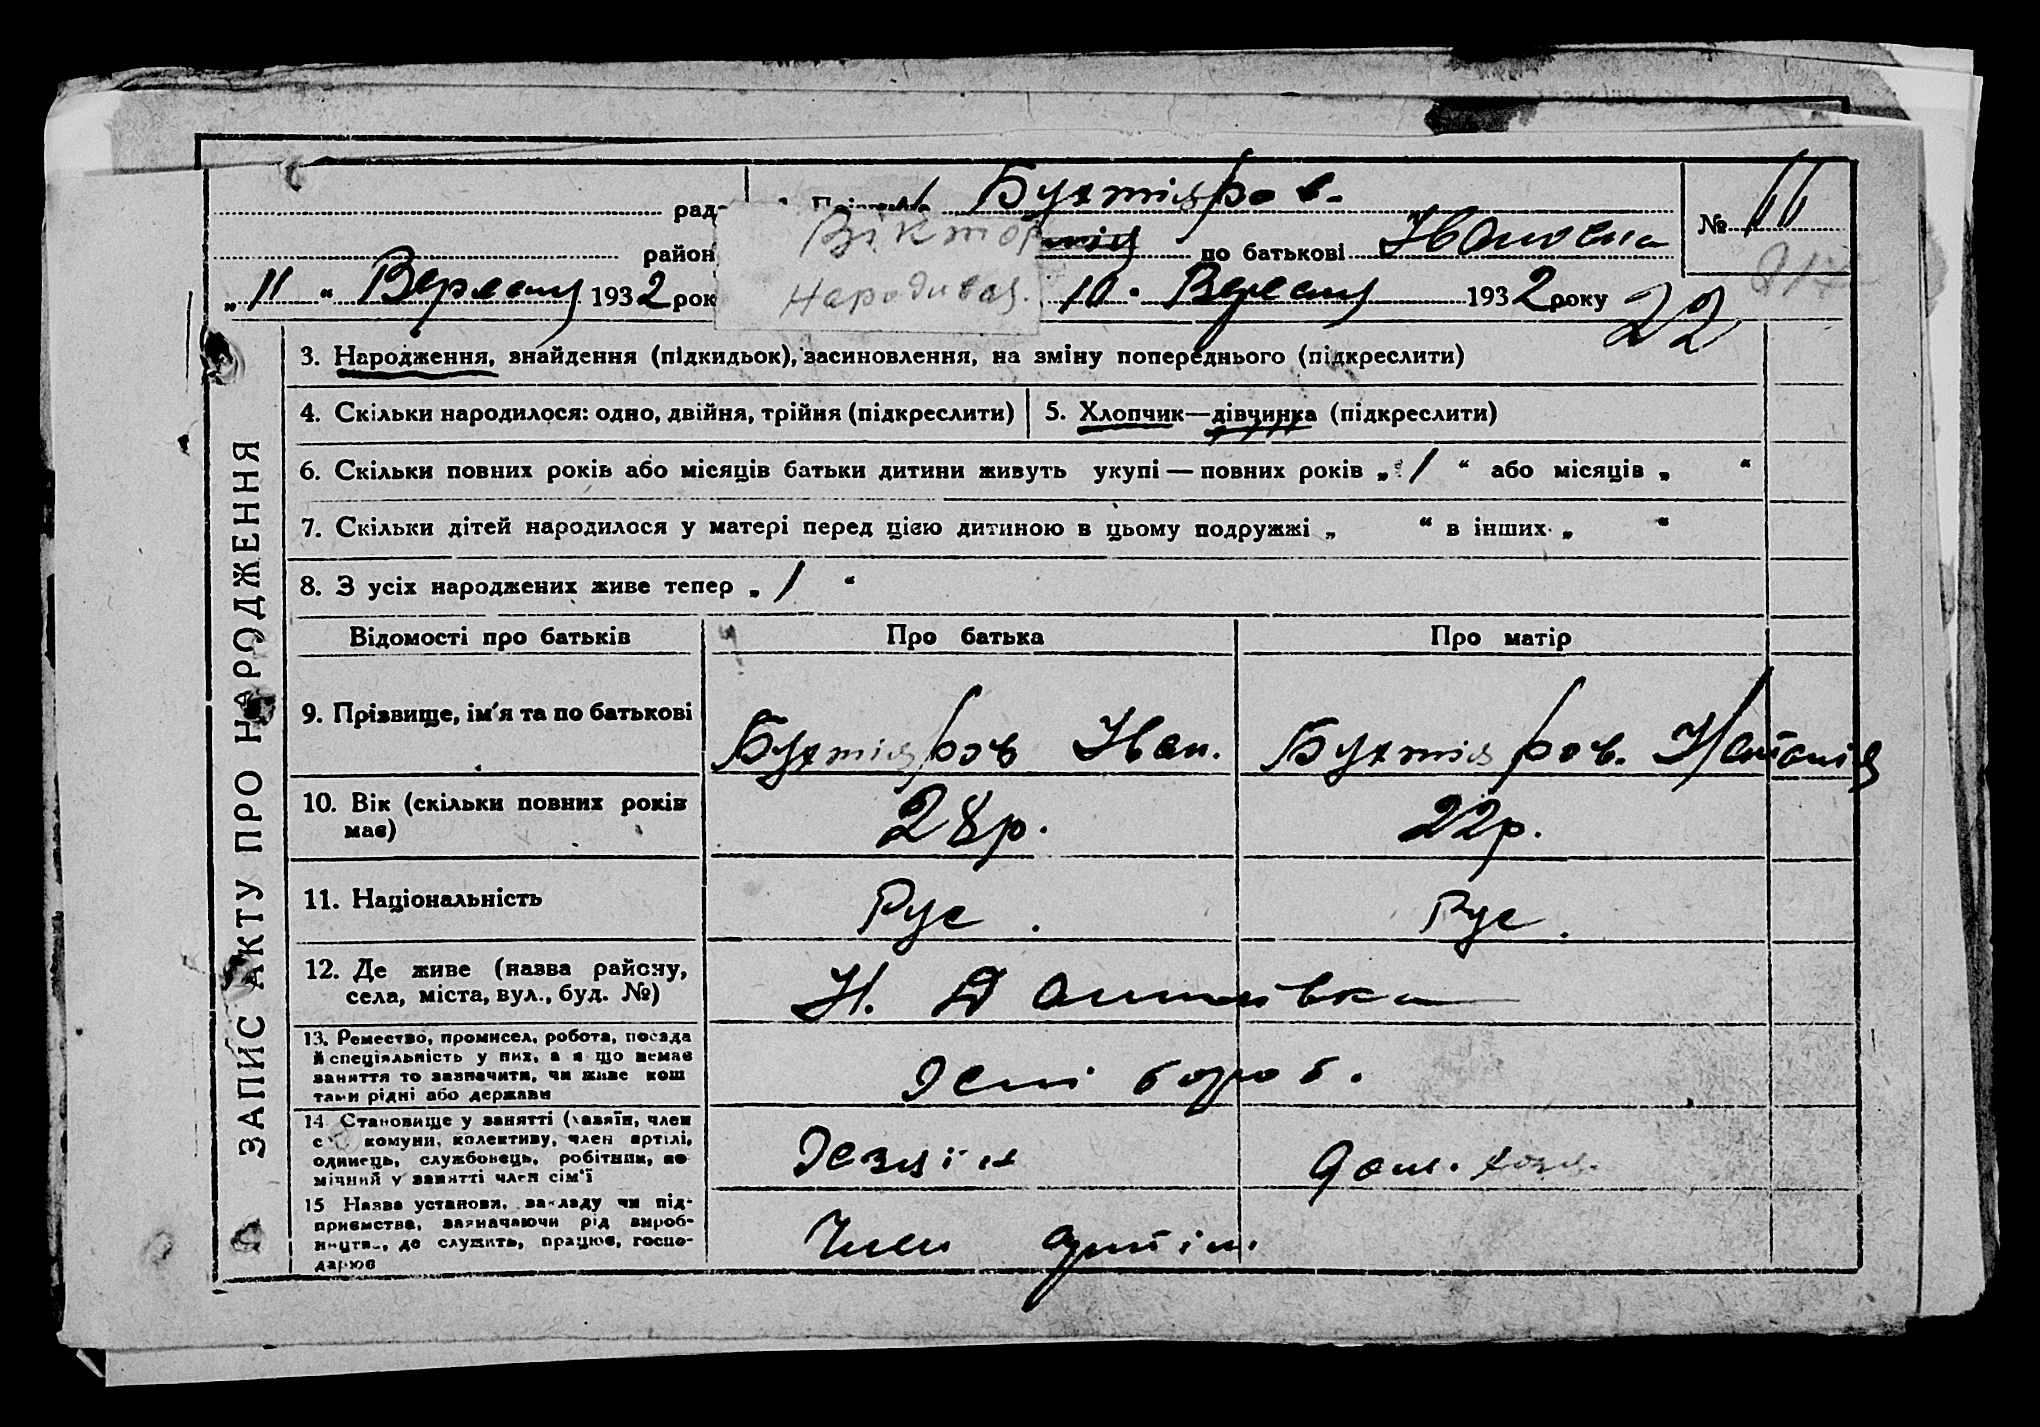 рад
Бухтіяров.
№ 11
район
Віктор
по батькові Іванівна
„ 11 “ Вересня 1932 рок
Народився.
10. Вересня 1932 року
22
ЗАПИС АКТУ ПРО НАРОДЖЕННЯ
3. Народження, знайдення (підкидьок), засиновлення, на зміну попереднього (підкреслити)
4. Скільки народилося: одно, двійня, трійня (підкреслити)
5. Хлопчик—дівчинка (підкреслити)
6. Скільки повних років або місяців батьки дитини живуть укупі — повних років „ 1 “ або місяців „ “
7. Скільки дітей народилося у матері перед цією дитиною в цьому подружжі „ “ в інших „ “
8. З усіх народжених живе тепер „ 1 “
Відомості про батьків
Про батька
Про матір
9. Прізвище, ім'я та по батькові
Бухтіяров Іван.
Бухтіяров. Наталія
10. Вік (скільки повних років
має)
28р.
22р.
11. Національність
Рус.
Рус.
12. Де живе (назва району,
села, міста, вул., буд. №)
Н. Данилівка
13. Ремество, промисел, робота, посада
й спеціяльність у них, а я що немає
заняття то зазначити, чи живе кош
тами рідні або держави
хороб.
14 Становище у занятті (хазяїн, член
с комуни, колективу, член артілі,
одинець, службовець, робітник, по
мічний у занятті член сім'ї
Хазяїн
дом. хозя.
15 Назва установи, закладу чи під-
приємства, зазначаючи рід вироб-
ництва, де служить, працює, госпо-
дарює
Член артіл.